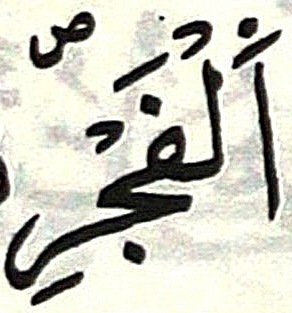 اَلْفَجْرِ ۖ ص